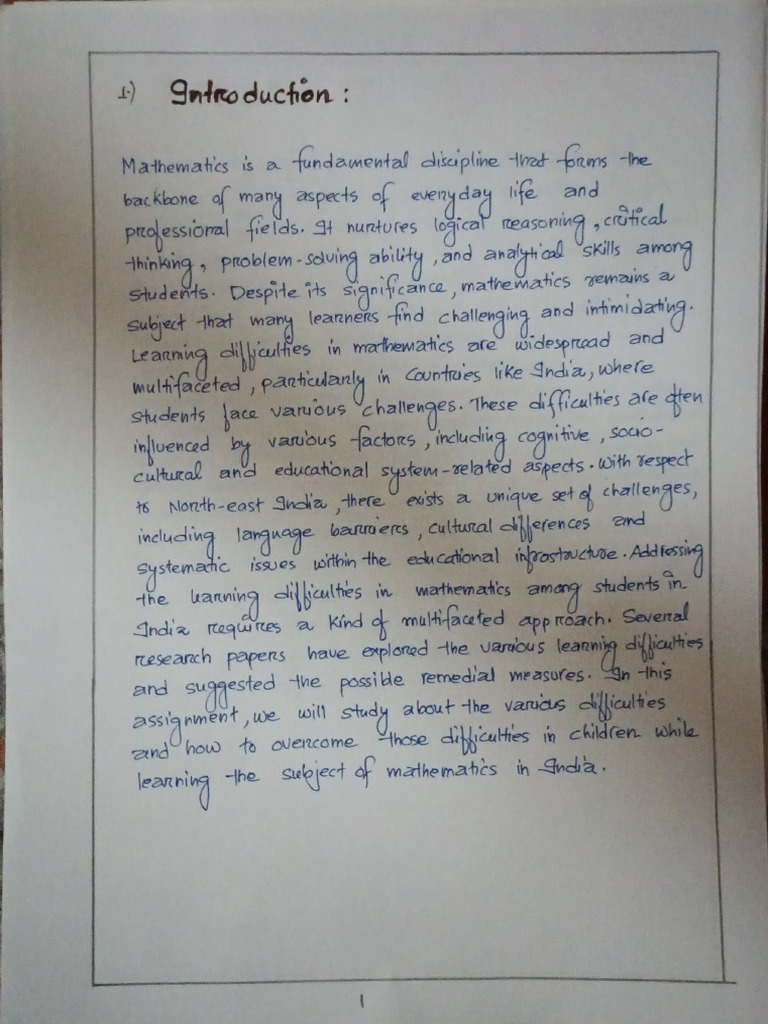 1.) Introduction :
Mathematics is a fundamental discipline that forms the
backbone of many aspects of everyday life and
professional fields. It nurtures logical reasoning, critical
thinking, problem-solving ability, and analytical skills among
students. Despite its significance, mathematics remains a
subject that many learners find challenging and intimidating.
Learning difficulties in mathematics are widespread and
multifaceted, particularly in Countries like India, where
students face various challenges. These difficulties are often
influenced by various factors, including cognitive, socio-
cultural and educational system-related aspects. With respect
to North-east India, there exists a unique set of challenges,
including language barriers, cultural differences and
systematic issues within the educational infrastructure. Addressing
the learning difficulties in mathematics among students in
India requires a kind of multifaceted approach. Several
research papers have explored the various learning difficulties
and suggested the possible remedial measures. In this
assignment, we will study about the various difficulties
and how to overcome those difficulties in children while
learning the subject of mathematics in India.
1